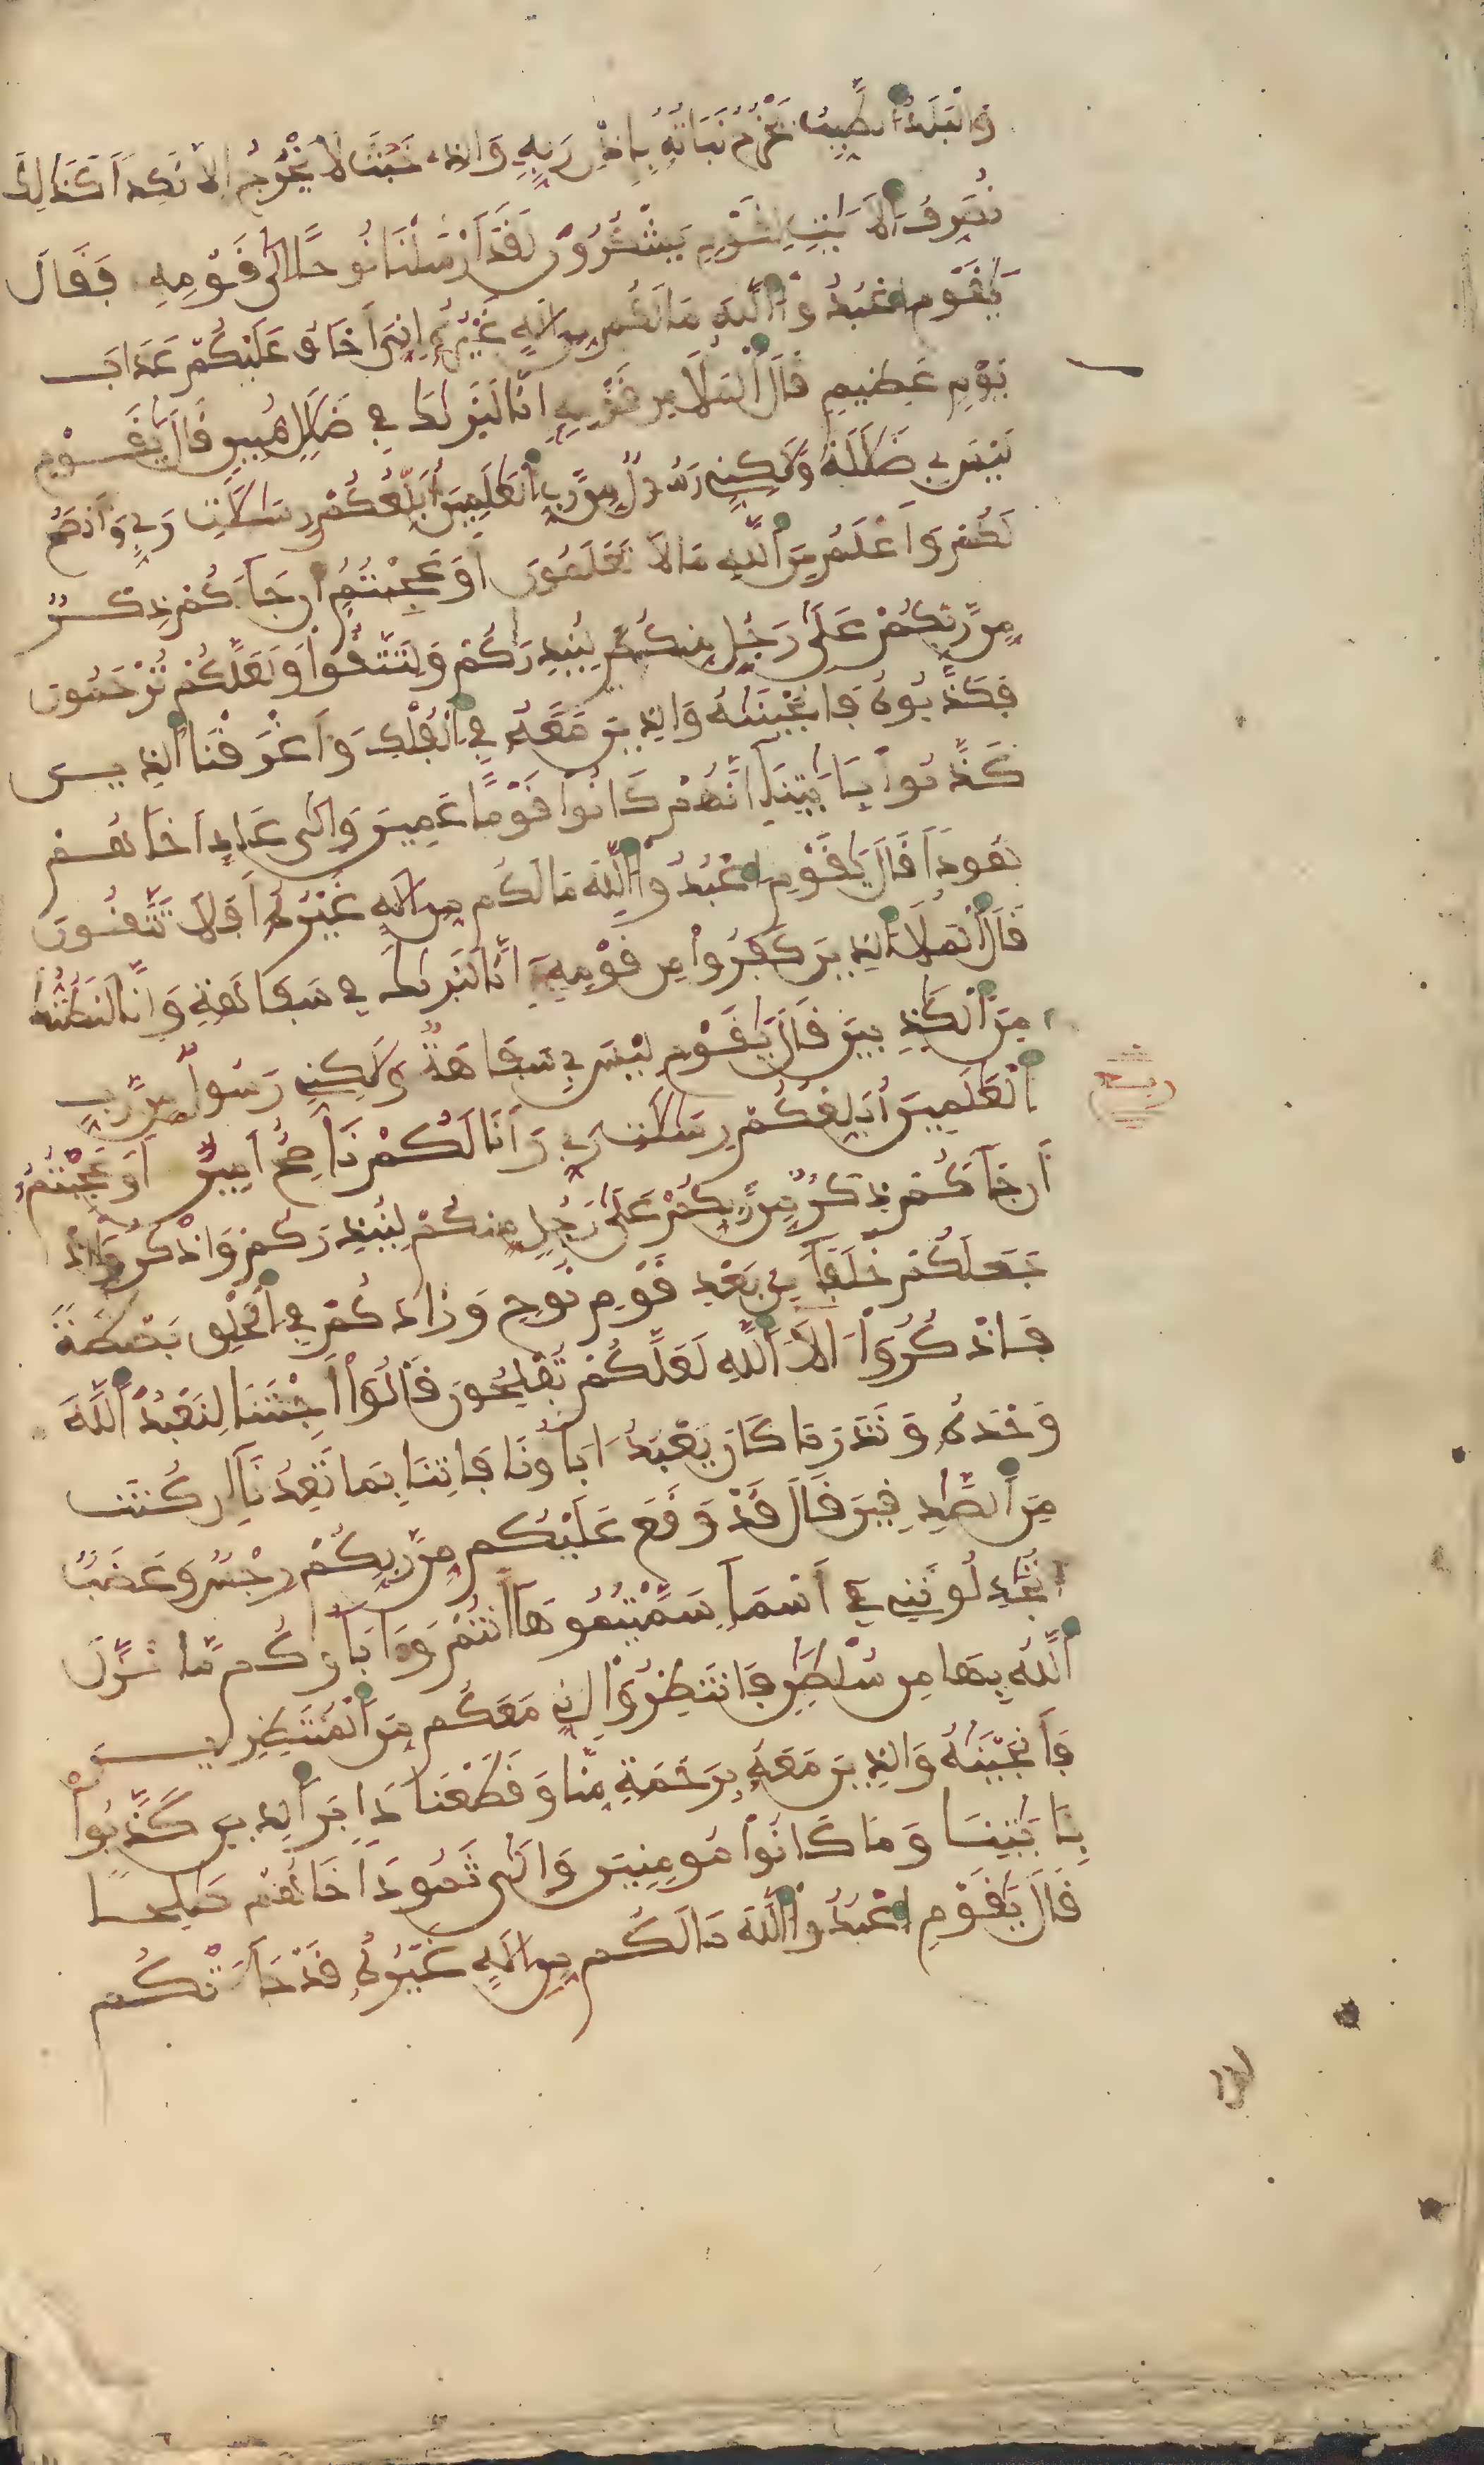 وَالْبَلَدُ الطَّيِّبُ يَخْرُجُ نَبَاتُهُ بِإِذْنِ رَبِّهِ وَالذِے خَبُثَ لَا يَخْرُجُ إِلَّا نَكِدًا كَذَٰلِكَ
نُصَرِّفُ الْأَيَٰتِ لِقَوْمٍ يَشْكُرُونَ لَقَدَ ارْسَلْنَا نُوحًا إِلَىٰ قَوْمِهِ فَقَالَ
يَٰقَوْمِ اعْبُدُوا اللَّهَ مَا لَكُم مِّنِ الَٰهٍ غَيْرُهُ إِنِّيَ أَخَافُ عَلَيْكُمْ عَذَابَ
يَوْمٍ عَظِيمٍ قَالَ الْمَلَأُ مِن قَوْمِهِ إِنَّا لَنَرَىٰكَ فِي ضَلَٰلٍ مُّبِينٍ قَالَ يَٰقَوْمِ
لَيْسَ بِي ضَلَٰلَةٌ وَلَٰكِنِّي رَسُولٌ مِّن رَّبِّ الْعَٰلَمِينَ أُبَلِّغُكُمْ رِسَٰلَٰتِ رَبِّي وَأَنصَحُ
لَكُمْ وَأَعْلَمُ مِنَ اللَّهِ مَا لَا تَعْلَمُونَ أَوَعَجِبْتُمُ أَن جَآءَكُمْ ذِكْرٌ
مِّن رَّبِّكُمْ عَلَىٰ رَجُلٍ مِّنكُمْ لِيُنذِرَكُمْ وَلِتَتَّقُوا وَلَعَلَّكُمْ تُرْحَمُونَ
فَكَذَّبُوهُ فَأَنجَيْنَٰهُ وَالذِينَ مَعَهُ فِي الْفُلْكِ وَأَغْرَقْنَا الذِينَ
كَذَّبُوا بِـَٔايَٰتِنَا إِنَّهُمْ كَانُوا قَوْمًا عَمِينَ وَإِلَىٰ عَادٍ أَخَاهُمْ
هُودًا قَالَ يَٰقَوْمِ اعْبُدُوا اللَّهَ مَا لَكُم مِّنِ الَٰهٍ غَيْرُهُ أَفَلَا تَتَّقُونَ
قَالَ الْمَلَأُ الذِينَ كَفَرُوا مِن قَوْمِهِ إِنَّا لَنَرَىٰكَ فِي سَفَاهَةٍ وَإِنَّا لَنَظُنُّكَ
مِنَ الْكَٰذِبِينَ قَالَ يَٰقَوْمِ لَيْسَ بِي سَفَاهَةٌ وَلَٰكِنِّي رَسُولٌ مِّن رَّبِّ
الْعَٰلَمِينَ أُبَلِّغُكُمْ رِسَٰلَٰتِ رَبِّي وَأَنَا لَكُمْ نَاصِحٌ أَمِينٌ أَوَعَجِبْتُمُ
أَن جَآءَكُمْ ذِكْرٌ مِّن رَّبِّكُمْ عَلَىٰ رَجُلٍ مِّنكُمْ لِيُنذِرَكُمْ وَاذْكُرُوا إِذْ
جَعَلَكُمْ خُلَفَآءَ مِن بَعْدِ قَوْمِ نُوحٍ وَزَادَكُمْ فِي الْخَلْقِ بَصْطَةً
فَاذْكُرُوا ءَالَآءَ اللَّهِ لَعَلَّكُمْ تُفْلِحُونَ قَالُوا أَجِئْتَنَا لِنَعْبُدَ اللَّهَ
وَحْدَهُ وَنَذَرَ مَا كَانَ يَعْبُدُ ءَابَآؤُنَا فَاتِنَا بِمَا تَعِدُنَا إِن كُنتَ
مِنَ الصَّٰدِقِينَ قَالَ قَدْ وَقَعَ عَلَيْكُم مِّن رَّبِّكُمْ رِجْسٌ وَغَضَبٌ
أَتُجَٰدِلُونَنِي فِي أَسْمَآءٍ سَمَّيْتُمُوهَا أَنتُمْ وَءَابَآؤُكُم مَّا نَزَّلَ
اللَّهُ بِهَا مِن سُلْطَٰنٍ فَانتَظِرُوا إِنِّي مَعَكُم مِّنَ الْمُنتَظِرِينَ
فَأَنجَيْنَٰهُ وَالذِينَ مَعَهُ بِرَحْمَةٍ مِّنَّا وَقَطَعْنَا دَابِرَ الذِينَ كَذَّبُوا
بِـَٔايَٰتِنَا وَمَا كَانُوا مُومِنِينَ وَإِلَىٰ ثَمُودَ أَخَاهُمْ صَٰلِحًا
قَالَ يَٰقَوْمِ اعْبُدُوا اللَّهَ مَا لَكُم مِّنِ الَٰهٍ غَيْرُهُ قَدْ جَآءَتْكُم
ربع